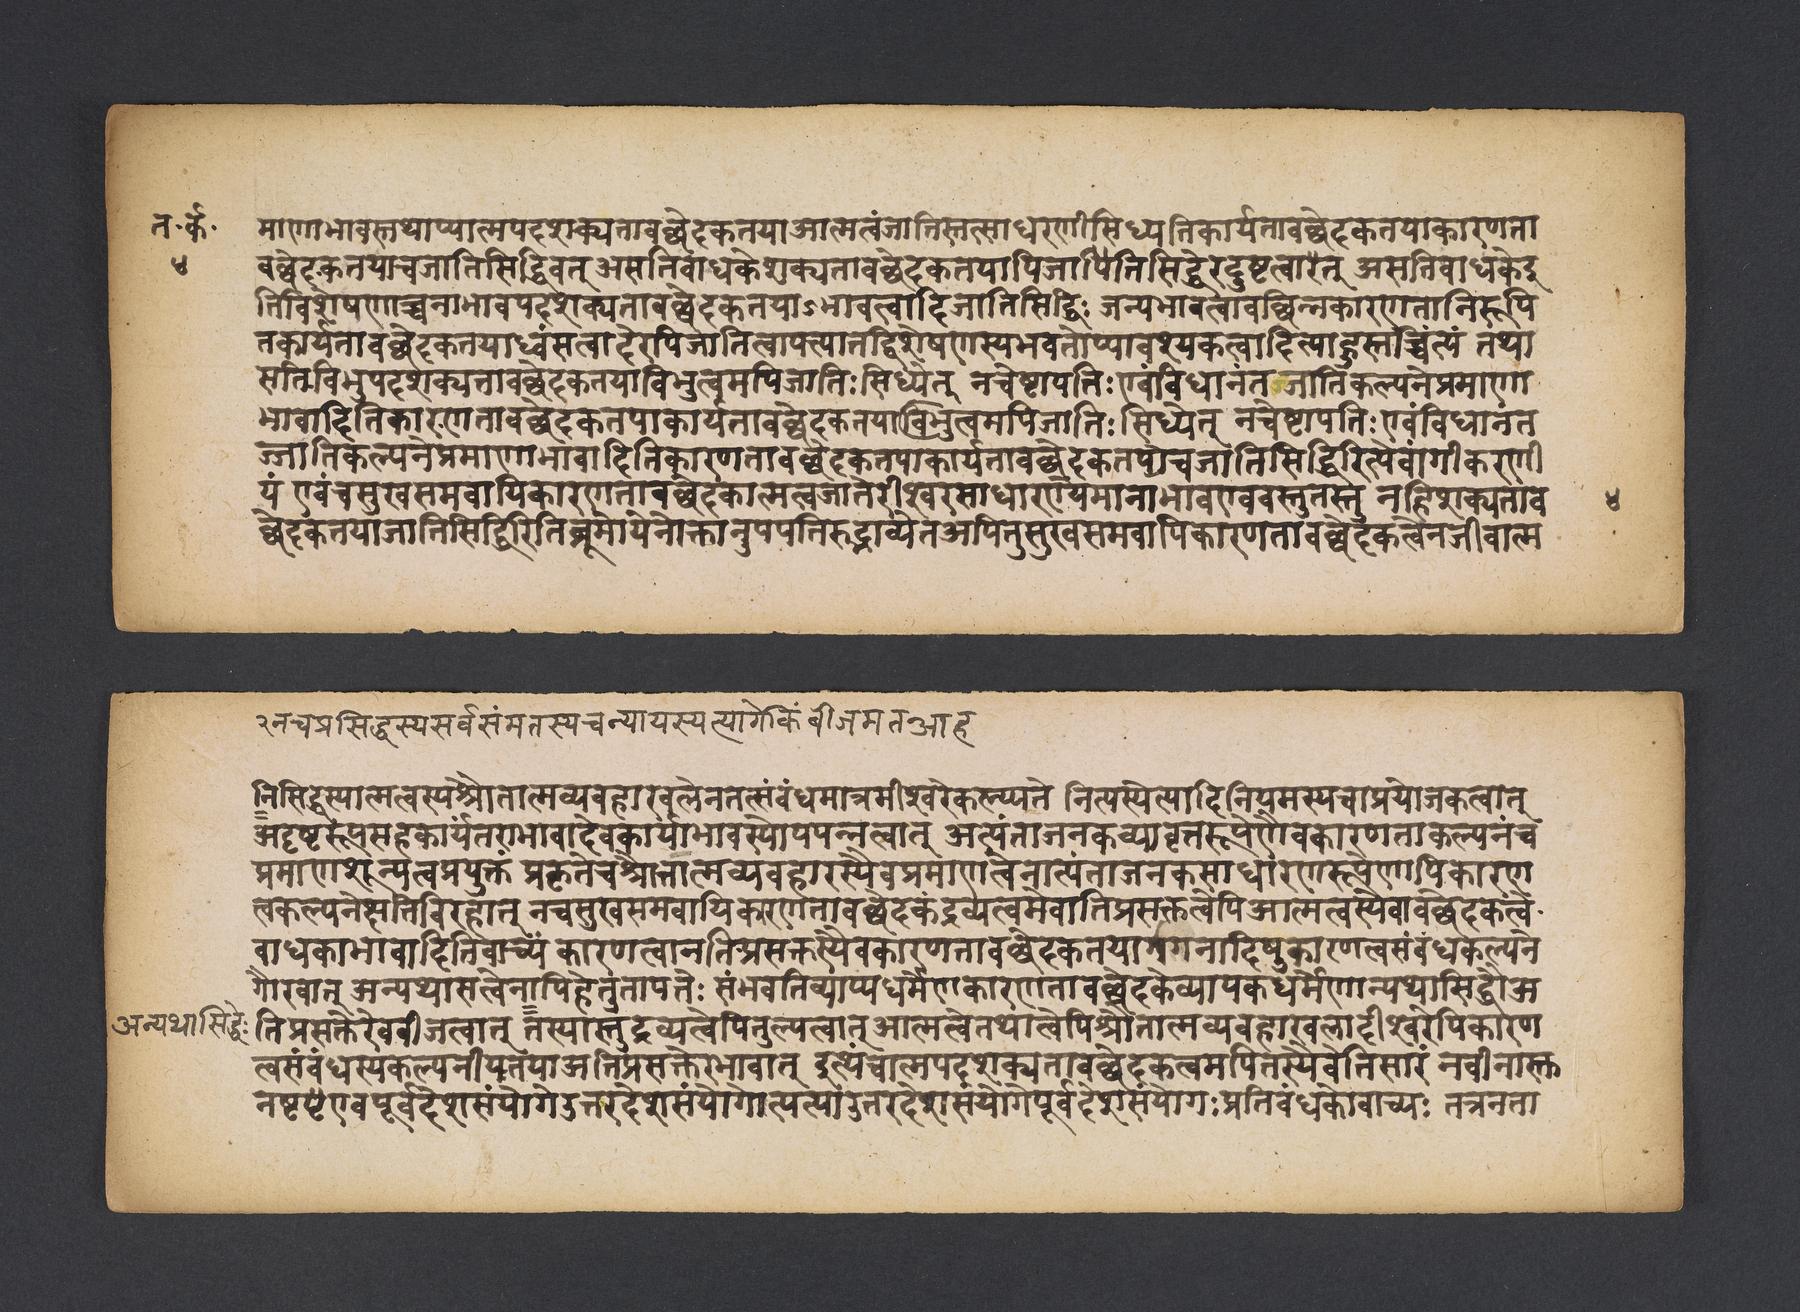 त॰र्क॰
४
माणाभावस्तथाप्यात्मपदशक्यतावछेदकतयाआत्मत्वंजातिस्तत्साधरणीसिध्यतिकार्यतावछेदकतयाकारणता
वछेदकतयाचजातिसिद्धिवत् असतिबाधकेशक्यतावछेदकतयापिजातिसिद्धेरदुष्टत्वात् असतिबाधकेइ
तिविशेषणाच्चनाभावपदशक्यतावछेदकतयाऽभावत्वादिजातिसिद्धिः जन्यभावत्वावछिन्नकारणतानिरूपि
तकार्यतावछेदकतयाध्वंसत्वादेरपिजातित्वापत्त्यातद्विशेषणस्यभवतोप्यावश्यकत्वादित्याहुस्तच्चिंत्यं तथा
सतिविभुपदशक्यतावछेदकतयाविभुत्वमपिजातिःसिध्येत् नचेष्टापत्तिःएवंविधानंतजातिकल्पनेप्रमाणा
भावादितिकारणतावछेदकतयाकार्यतावछेदकतयाविभुत्वमपिजातिःसिध्येत् नचेष्टापतिःएवंविधानंत
ज्जातिकल्पनेप्रमाणाभावादितिकारणतावछेदकतयाकार्यतावछेदकतयाचजातिसिद्धिरित्येवांगीकरणी
यं एवंचसुखसमवायिकारणतावछेदकात्मत्वजातेरीश्वरसाधारण्येमानाभावएववस्तुतस्तु नहिशक्यताव
४
छेदकतयाजातिसिद्धिरितिब्रूमोयेनोक्तानुपपतिरुद्भाव्येतअपितुसुखसमवायिकारणतावछेदकत्वेनजीवात्म
२नचप्रसिद्धस्यसर्वसंमतस्यचन्यायस्यत्यागेकिंबीजमतआह
निसिद्धस्यात्मत्वस्यश्रौतात्मव्यवहारबलेनतत्संबंधमात्रमीश्वरेकल्प्यते नित्यस्येत्यादिनियमस्यचाप्रयोजकत्वात्
अदृष्टरूपसहकार्यंतराभावादेवकार्याभावस्योपपन्नत्वात् अत्यंताजनकव्यावृत्तरूपेणैवकारणताकल्पनंच
प्रमाणशून्यत्वप्रयुक्तं प्रकृतेचश्रौतात्मव्यवहारस्यैवप्रमाणत्वेनात्यंताजनकसाधारणरूपेणापिकारण
त्वकल्पनेक्षतिविरहात् नचसुखसमवायिकारणतावछेदकंद्रव्यत्वमेवातिप्रसक्तत्वेपिआत्मत्वस्यैवावछेदकत्वे॰
बाधकाभावादितिवाच्यं कारणत्वानतिप्रसक्तस्यैवकारणतावछेदकतयागगनादिषुकारणत्वसंबंधकल्पने
गौरवात् अन्यथासत्वेनापिहेतुतापत्तेः संभवतिव्याप्यधर्मेणकारणतावछेदकेव्यापकधर्मेणान्यथासिद्धौअ
अन्यथासिद्धेः
तिप्रसक्तेरेवबीजत्वात् तस्यास्तुद्रव्यत्वेपितुल्यत्वात्आत्मत्वेतथात्वेपिश्रौतात्मव्यवहारबलादीश्वरेपिकारण
त्वसंबंधस्यकल्पनीयतयाअतिप्रसक्तेरभावात् इत्थंचात्मपदशक्यतावछेदकत्वमपितस्यैवेतिसारं नवीनास्क्त
नष्टएवपूर्वदेशसंयोगेउत्तरदेशसंयोगोत्पत्त्याउत्तरदेशसंयोगेपूर्वदेशसंयोगःप्रतिबंधकोवाच्यः तत्रनता